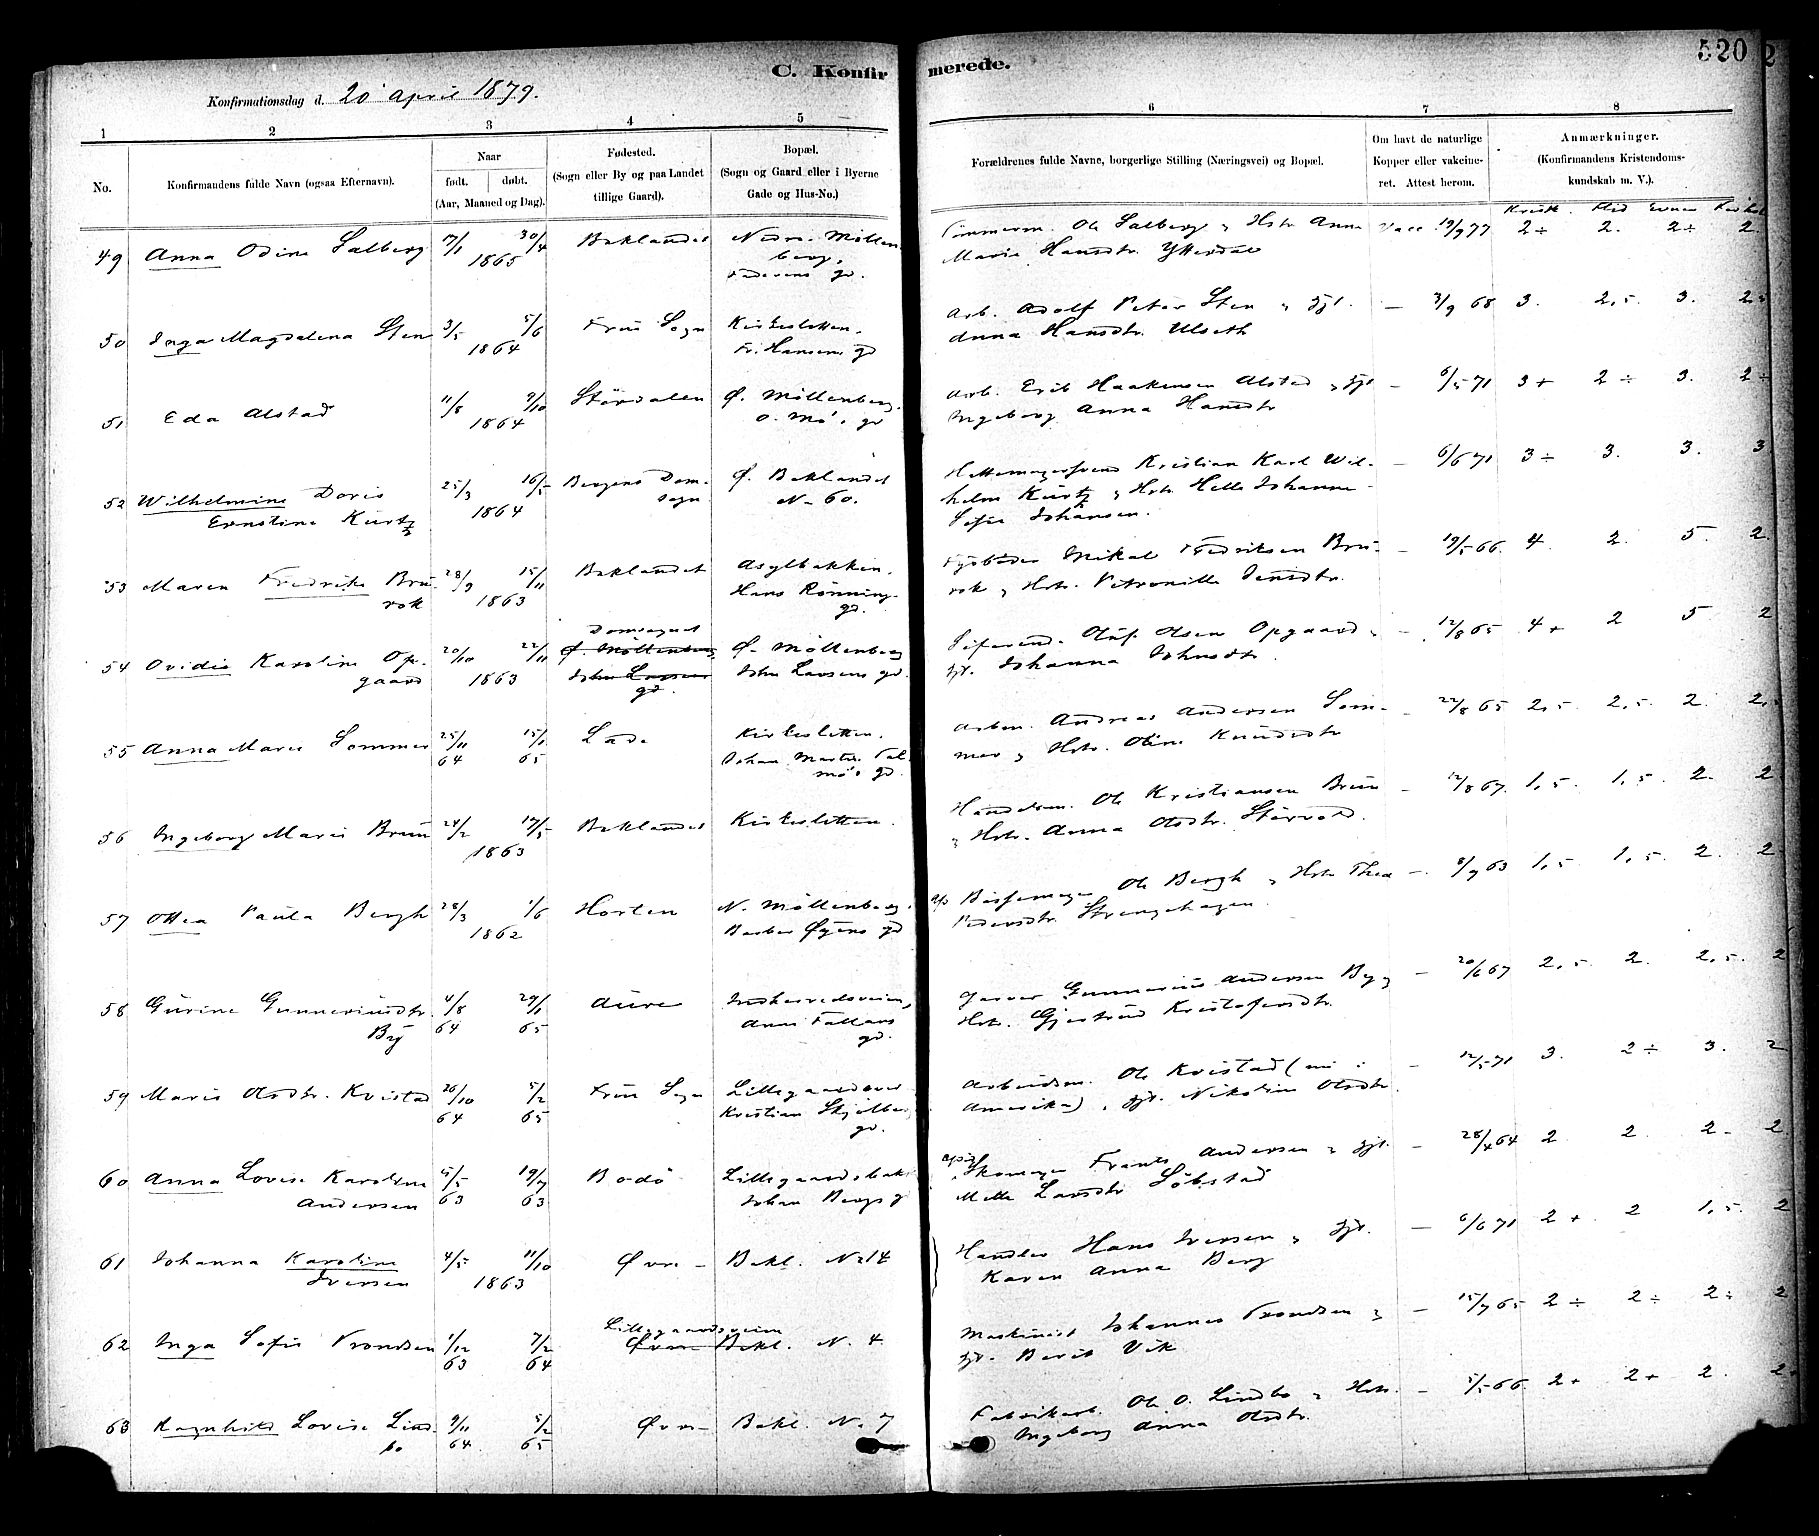 520
C. Konfirmerede.
Konfirmationsdag d. 20 April 1879.
1 2 3 4 5 6 7 8
No.
Konfirmandens fulde Navn (ogsaa Efternavn).
Naar
født. døbt.
(Aar, Maaned og Dag).
Fødested.
(Sogn eller By og paa Landet
tillige Gaard).
Bopæl.
(Sogn og Gaard eller i Byerne
Gade og Hus-No.)
Forældrenes fulde Navne, borgerlige Stilling (Næringsvei) og Bopæl.
Om havt de naturlige
Kopper eller vakcine-
ret. Attest herom.
Anmærkninger.
(Konfirmandens Kristendoms-
kundskab m. V.).
Kristk. Flid Evner
49 Anna Odine Salberg 17/1 30/4 1865 Baklandet Nedre Möllenberg, Faderens gd.
Tömmerm. Ole Salberg & Hstr. Anna
Marie Hansdtr. Ytterdal
Vacc. 19/9 77 2÷ 2. 2÷ 2
50 Inga Magdalena Sten 3/5 5/6 1864 Frue Sogn Kirkesletten. Fr. Hansens gd
Arb. Adolf Peter Sten & Hjl.
Anna Hansdtr. Ulseth
— 3/9 68 3. 2,5. 3. 2,5
51 Eda Alstad 11/8 9/10 1864 Stördalen Ø. Möllenberg. O. Mö's gd
Arb. Erik Haakensen Alstad & Hjl
Ingeborg Anna Hansdtr
— 6/5 71 3+ 2÷ 3. 2÷
52 Wilhelmine Doris
Ernstine Kurtz 25/3 16/5 1864 Bergens Domsogn Ø. Baklandet N. 60.
Hattemagersvend Kristian Karl Wil-
helm Kurtz & Hstr. Helle Johanne
Sofie Johansen.
— 6/6 71 3÷ 3. 3. 3
53 Maren Fredrikke Brurok 28/9 15/11 1863 Baklandet Asylbakken. Hans Rönnings gd.
Mikal Fredriksen Bru-
rok & Hstr. Petronille Jensdtr.
— 19/5 66. 4. 2. 5. 2
54 Ovidia Karoline Opgaard 20/10 22/11 1863 Domsognet Ø. Möllenberg, John Larsens gd. Ø. Möllenberg John Larsens gd.
Oluf Olsen Opgaard &
Hjl. Johanna Johnsdtr.
— 12/8 65 4+ 2 5 2
55 Anna Marie Sommer 25/11 64 15/1 65 Lade Kirkesletten. Johan Martin gd.
Arbm. Andreas Andersen Som-
mer & Hstr. Oline Knudsdtr
— 22/8 65 2,5. 2,5. 2. 2,5
56 Ingeborg Marie Bruun 24/2 17/5 1863 Baklandet Kirkesletten.
Handelsm. Ole Kristiansen Bruun
& Hstr. Anna Olsdtr. Störvold.
— 12/8 67. 1,5. 1,5. 2. 2
57 Ottea Paula Bergh 28/3 1/6 1862 Horten N. Möllenberg. Barber Øyens gd
Bössemager Ole Bergh & Hstr Thea
Pedersdtr. Strengehagen.
— 8/9 63 1,5 1,5. 2. 2
58 Gurine Gunneriusdtr. By 4/8 64 29/1 65 Aure Indherredsveien, gd.
Garver Gunnerius Andersen By &
Hstr. Gjertrud Kristofersdtr.
— 20/6 67 2,5. 2. 2,5. 2
59 Marie Olsdtr. Kvistad 26/10 64 5/2 65 Frue Sogn Kristian Skjelbergs gd.
Arbeidsm. Ole Kvistad (nu i
Amerika) & Hjl. Nikoline Olsdtr.
— 12/5 71 3. 2÷ 3. 2
60 Anna Lovise Karoline
Andersen 5/5 63 19/7 63 Bodö Lillegaardsbak. Johan Bergs g
Skomager Frants Andersen & Hjl.
Mette Larsdtr Söbstad
— 28/4 64 2 2. 2- 2
61 Johanna Karoline
Iversen 4/5 11/10 1863 Øvre — Bakl. No 14
Handler Hans Iversen & Hjl.
Karen Anna Berg
— 6/6 71 2+ 2 1,5. 2
62 Inga Sofie Trondsen 1/12 63 7/2 64 Lillegaardsveien Øvre Bakl. N. 4
Maskinist Johannes Trondsen &
Hjl. Berit Vik
— 15/7 65 2÷ 2÷ 2÷ 2
63 Ragnhild Lovise Lindbo 9/11 64. 5/2 65 Øvre — Bakl. N. 7
Fabrikarb. Ole O. Lindbo & Hstr.
Ingeborg Anna Olsdtr.
— 5/5 66. 2+ 2+ 2. 2